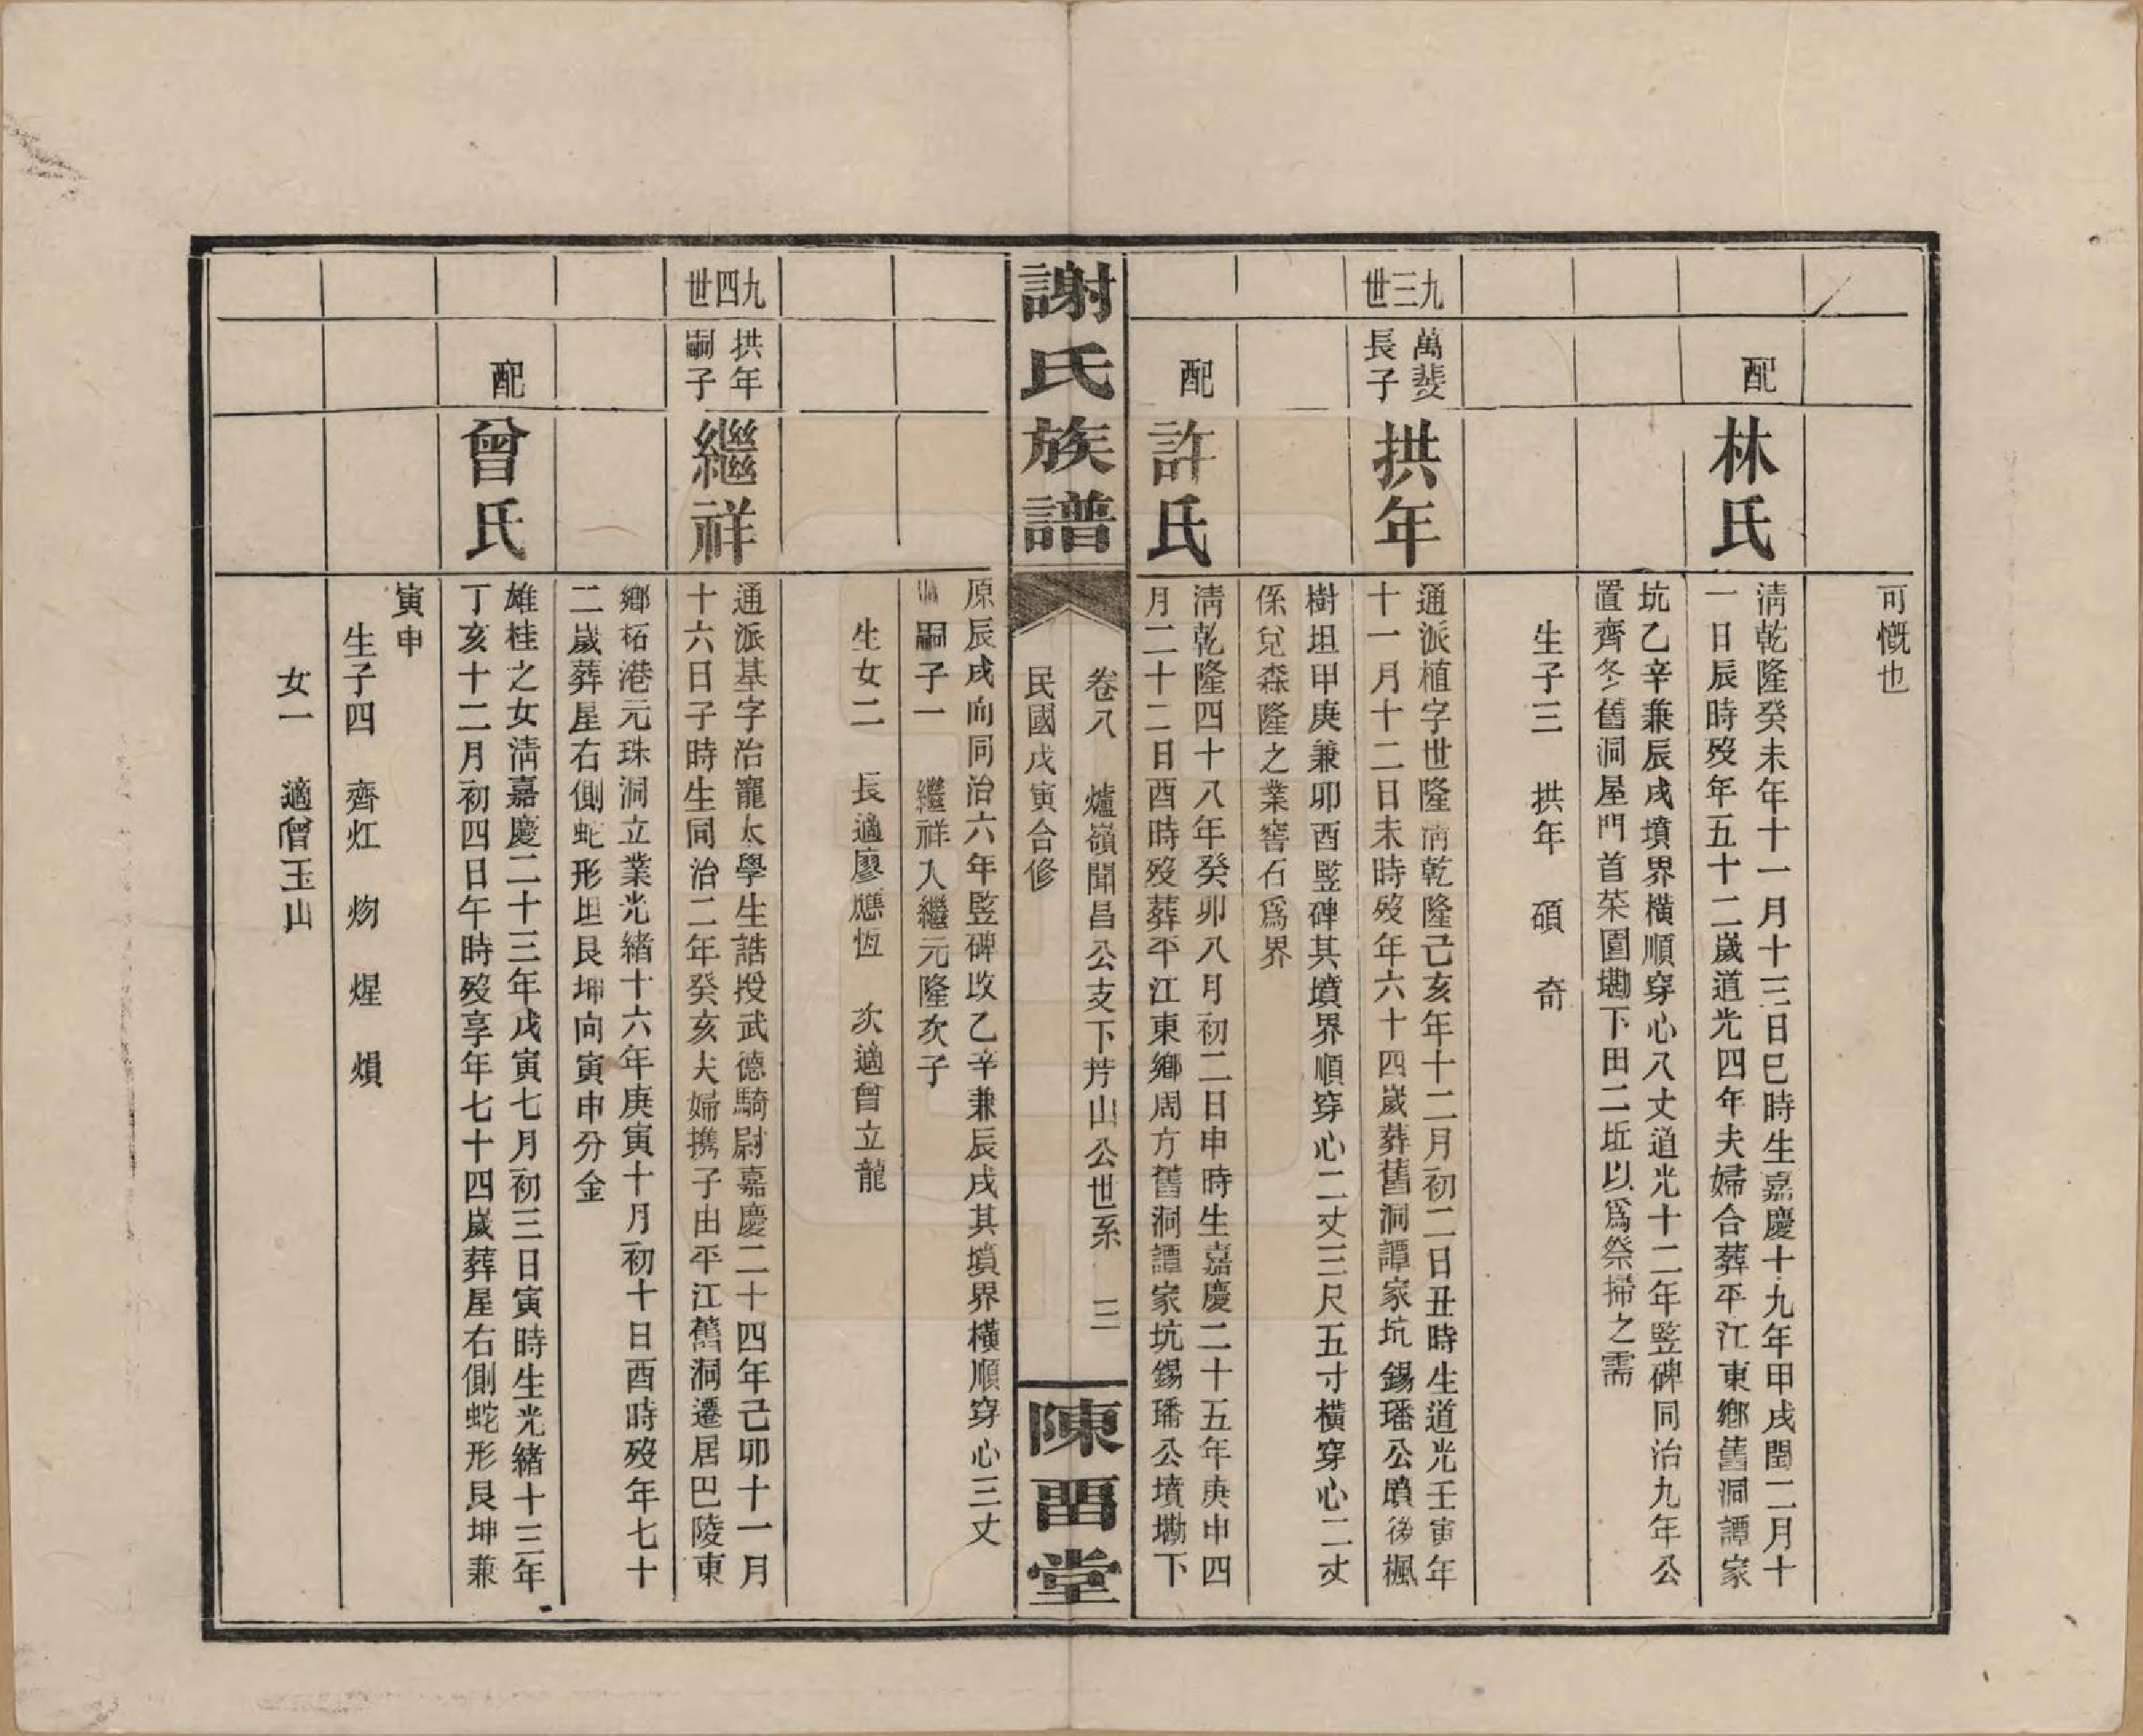 可慨也
配
林氏
清乾隆癸未年十一月十三日巳時生嘉慶十九年甲戌閏二月十
一日辰時歿年五十二歲道光四年夫婦合葬平江東鄉舊洞譚家
坑乙辛兼辰戌墳界橫順穿心八丈道光十二年竪碑同治九年公
置齊冬舊洞屋門首茱園墈下田二坵以爲祭掃之需
生子三 拱年 碩 奇
九三世
萬斐
長子
拱年
通派植字世隆清乾隆己亥年十二月初二日丑時生道光壬寅年
十一月十二日未時歿年六十四歲葬舊洞譚家坑錫璠公墳後楓
樹坦甲庚兼卯酉竪碑其墳界順穿心二丈三尺五寸橫穿心二丈
係兌森隆之業窖石爲界
配
許氏
清乾隆四十八年癸卯八月初二日申時生嘉慶二十五年庚申四
月二十二日酉時歿葬平江東鄉周方舊洞譚家坑錫璠公墳墈下
謝氏族譜
卷八 爐嶺聞昌公支下芳山公世系 三
民國戊寅合修
陳畱堂
原辰戌向同治六年竪碑改乙辛兼辰戌其墳界橫順穿心三丈
嗣子一 繼祥入繼元隆次子
生女二 長適廖應恆 次適曾立龍
九四世
拱年
嗣子
繼祥
通派基字治寵太學生誥授武德騎尉嘉慶二十四年己卯十一月
十六日子時生同治二年癸亥夫婦携子由平江舊洞遷居巴陵東
鄉柘港元珠洞立業光緒十六年庚寅十月初十日酉時歿年七十
二歲葬屋右側蛇形坦艮坤向寅申分金
配
曾氏
雄桂之女清嘉慶二十三年戊寅七月初三日寅時生光緒十三年
丁亥十二月初四日午時歿享年七十四歲葬屋右側蛇形艮坤兼
寅申
生子四 齊灴 煭 煋 熕
女一 適僧玉山